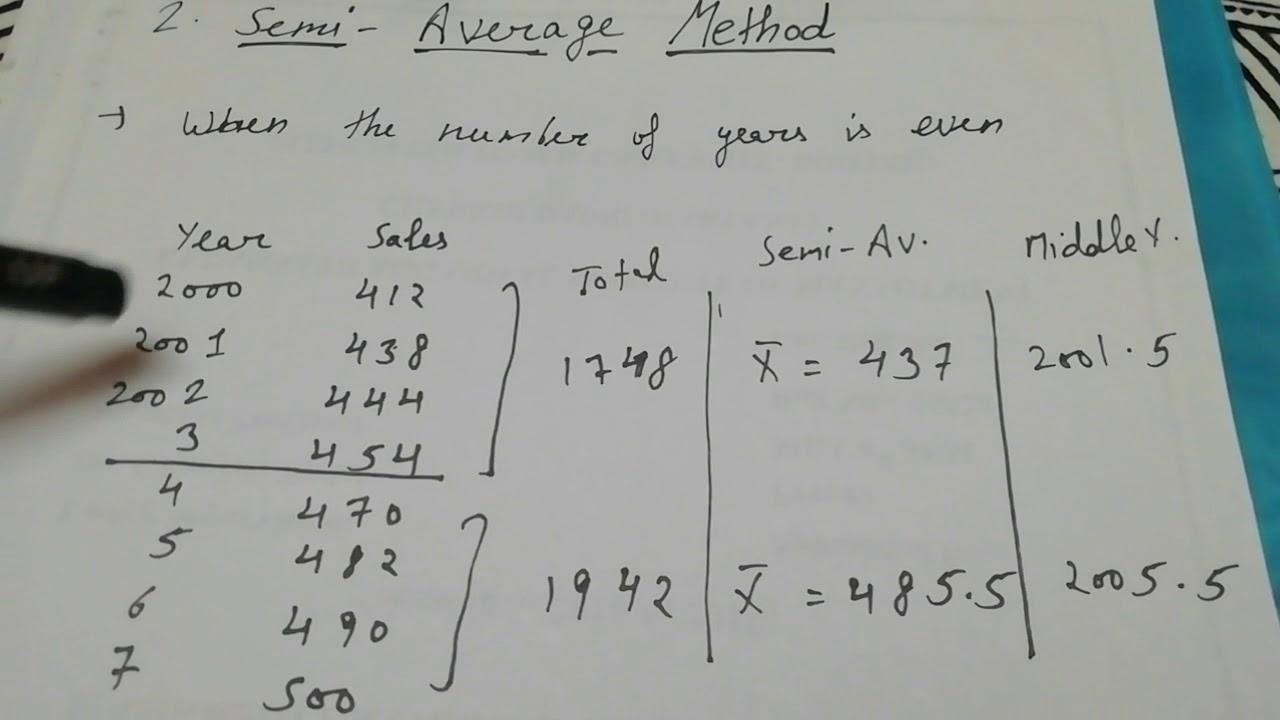 2. Semi-Average Method
→ When the number of years is even
Year Sales Total Semi-Av. Middle Y.
2000 412
2001 438 1748 X̄ = 437 2001.5
2002 444
3 454
4 470
5 482
6 490 1942 X̄ = 485.5 2005.5
7 500